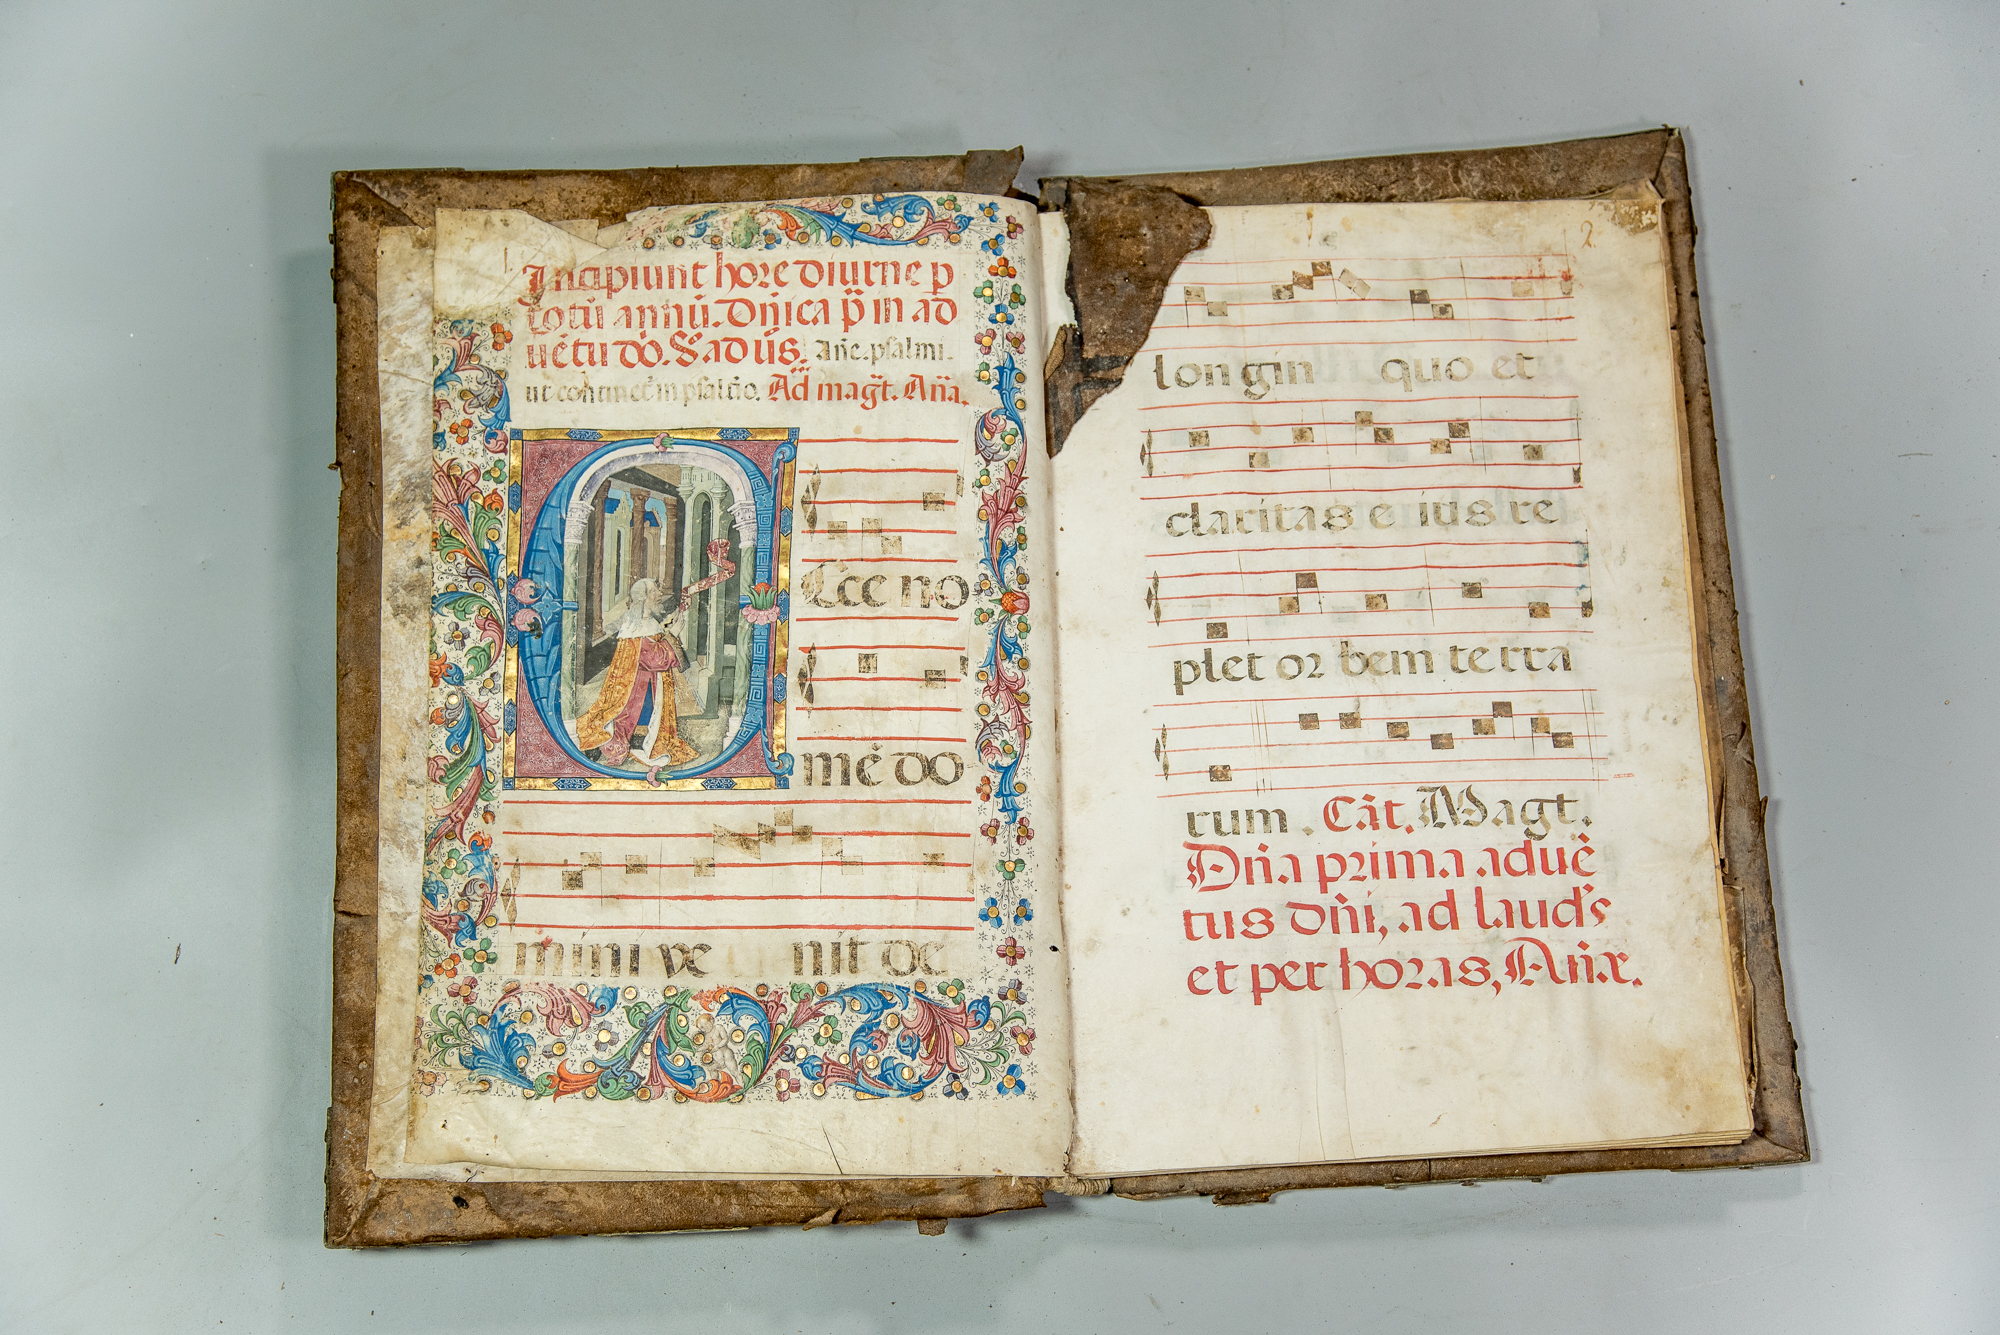 1.
Incipiunt hore diurne p̱
totū annū. Dñica p̈ in ad
uētu dō. Sƀado ad ūs. Añe. psalmi.
ut continet̄ in psalťio. Ad mag̃t. Añã.
Ecce no
mē do
mini ve nit de
2
longin quo et
claritas e ius re
plet or bem terra
rum . Cãt. Magt.
Dñ̃a prima aduē
tus dñi, ad laud's
et per horas, Añæ.